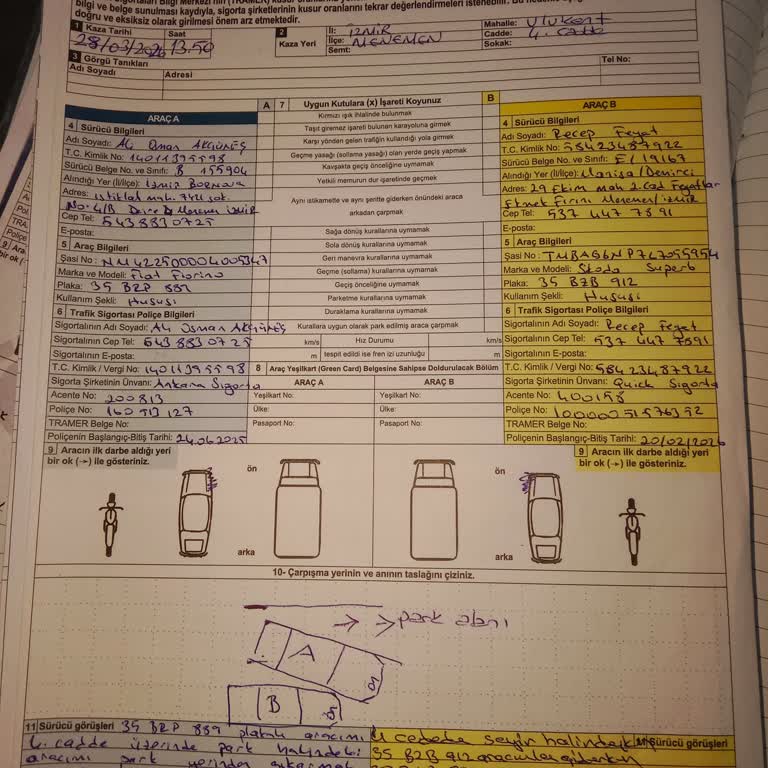 Sigortaları Bilgi Merkezi'nin (TRAMER) kusur oranlarını tekrar değerlendirmeleri istenebilir.
bilgi ve belge sunulması kaydıyla, sigorta şirketlerinin kusur oranlarını tekrar değerlendirmeleri istenebilir.
doğru ve eksiksiz olarak girilmesi önem arz etmektedir.
1 Kaza Tarihi Saat
28/03/2026 13.50
2 Kaza Yeri
İl: İZMİR
İlçe: MENEMEN
Semt:
Mahalle: Ulukent
Cadde: 4. Cadde
Sokak:
3 Görgü Tanıkları
Adı Soyadı Adresi Tel No:
ARAÇ A
4 Sürücü Bilgileri
Adı Soyadı: Ali Osman AKGÜNEŞ
T.C. Kimlik No: 14011395598
Sürücü Belge No. ve Sınıfı: B 155904
Alındığı Yer (İl/İlçe): İzmir Bornova
Adres: istiklal mah.
No: 4/B Daire Menemen İZMİR
Cep Tel: 5438830725
E-posta:
5 Araç Bilgileri
Şasi No: NM422500004005347
Marka ve Modeli: Fiat Fiorino
Plaka: 35 BZP 889
Kullanım Şekli: Hususi
6 Trafik Sigortası Poliçe Bilgileri
Sigortalının Adı Soyadı: Ali Osman AKGÜNEŞ
Sigortalının Cep Tel: 543 883 07 25
Sigortalının E-posta:
T.C. Kimlik / Vergi No: 14011395598
Sigorta Şirketinin Ünvanı: Ankara Sigorta
Acente No: 200813
Poliçe No: 160 513 127
TRAMER Belge No:
Poliçenin Başlangıç-Bitiş Tarihi: 24.06.2025
A 7 Uygun Kutulara (x) İşareti Koyunuz B
Kırmızı ışık ihlalinde bulunmak
Taşıt giremez işareti bulunan karayoluna girmek
Karşı yönden gelen trafiğin kullandığı yola girmek
Geçme yasağı (sollama yasağı) olan yerde geçiş yapmak
Kavşakta geçiş önceliğine uymamak
Yetkili memurun dur işaretinde geçmek
Aynı istikamette ve aynı şeritte giderken önündeki araca
arkadan çarpmak
Sağa dönüş kurallarına uymamak
Sola dönüş kurallarına uymamak
Geri manevra kurallarına uymamak
Geçme (sollama) kurallarına uymamak
Geçiş önceliğine uymamak
Parketme kurallarına uymamak
Duraklama kurallarına uymamak
Kurallara uygun olarak park edilmiş araca çarpmak
km/s Hız Durumu km/s
m tespit edildi ise fren izi uzunluğu m
8 Araç Yeşilkart (Green Card) Belgesine Sahipse Doldurulacak Bölüm
ARAÇ A ARAÇ B
Yeşilkart No: Yeşilkart No:
Ülke: Ülke:
Pasaport No: Pasaport No:
ARAÇ B
4 Sürücü Bilgileri
Adı Soyadı: Recep Feyat
T.C. Kimlik No: 58423487922
Sürücü Belge No. ve Sınıfı: E/19167
Alındığı Yer (İl/İlçe): Manisa/Demirci
Adres: 29 Ekim mah 2.cad Feyatlar
Ekmek Fırını Menemen/izmir
Cep Tel: 537 447 7891
E-posta:
5 Araç Bilgileri
Şasi No: TMBAG6NP7L7055954
Marka ve Modeli: Skoda Superb
Plaka: 35 BZB 912
Kullanım Şekli: Hususi
6 Trafik Sigortası Poliçe Bilgileri
Sigortalının Adı Soyadı: Recep Feyat
Sigortalının Cep Tel: 537 447 7891
Sigortalının E-posta:
T.C. Kimlik / Vergi No: 58423487922
Sigorta Şirketinin Ünvanı: Quick Sigorta
Acente No: 400158
Poliçe No:
TRAMER Belge No:
Poliçenin Başlangıç-Bitiş Tarihi: 20/02/2026
9 Aracın ilk darbe aldığı yeri
bir ok (→) ile gösteriniz.
ön
arka
ön
arka
9 Aracın ilk darbe aldığı yeri
bir ok (→) ile gösteriniz.
10- Çarpışma yerinin ve anının taslağını çiziniz.
park alanı
A
ön
B
ön
11 Sürücü görüşleri 35 BZP 889 plakalı aracımı
4. cadde üzerinde park halindeki
aracımı park yerinden çıkarmak
4 cadede seyir halindeyken 11 Sürücü görüşleri
35 BZB 912 aracımla giderken